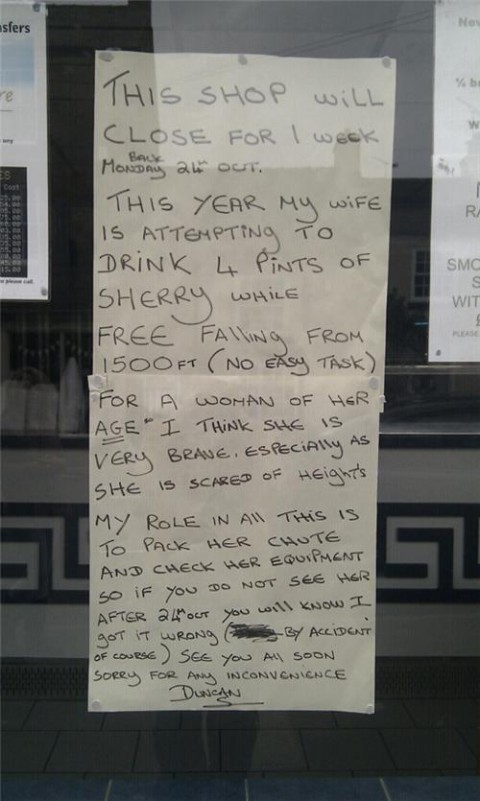 THIS SHOP WILL
CLOSE FOR 1 WEEK
BACK
MONDAY 24th OCT.
THIS YEAR MY WIFE
IS ATTEMPTING TO
DRINK 4 PINTS OF
SHERRY WHILE
FREE FALLING FROM
1500FT (NO EASY TASK)
FOR A WOMAN OF HER
AGE" I THINK SHE IS
VERY BRAVE. ESPECIALLY AS
SHE IS SCARED OF HEIGHT'S
MY ROLE IN ALL THIS IS
TO PACK HER CHUTE
AND CHECK HER EQUIPMENT
SO IF YOU DO NOT SEE HER
AFTER 24th OCT YOU WILL KNOW I
GOT IT WRONG (BY ACCIDENT
OF COURSE) SEE YOU ALL SOON
SORRY FOR ANY INCONVENIENCE
DUNCAN